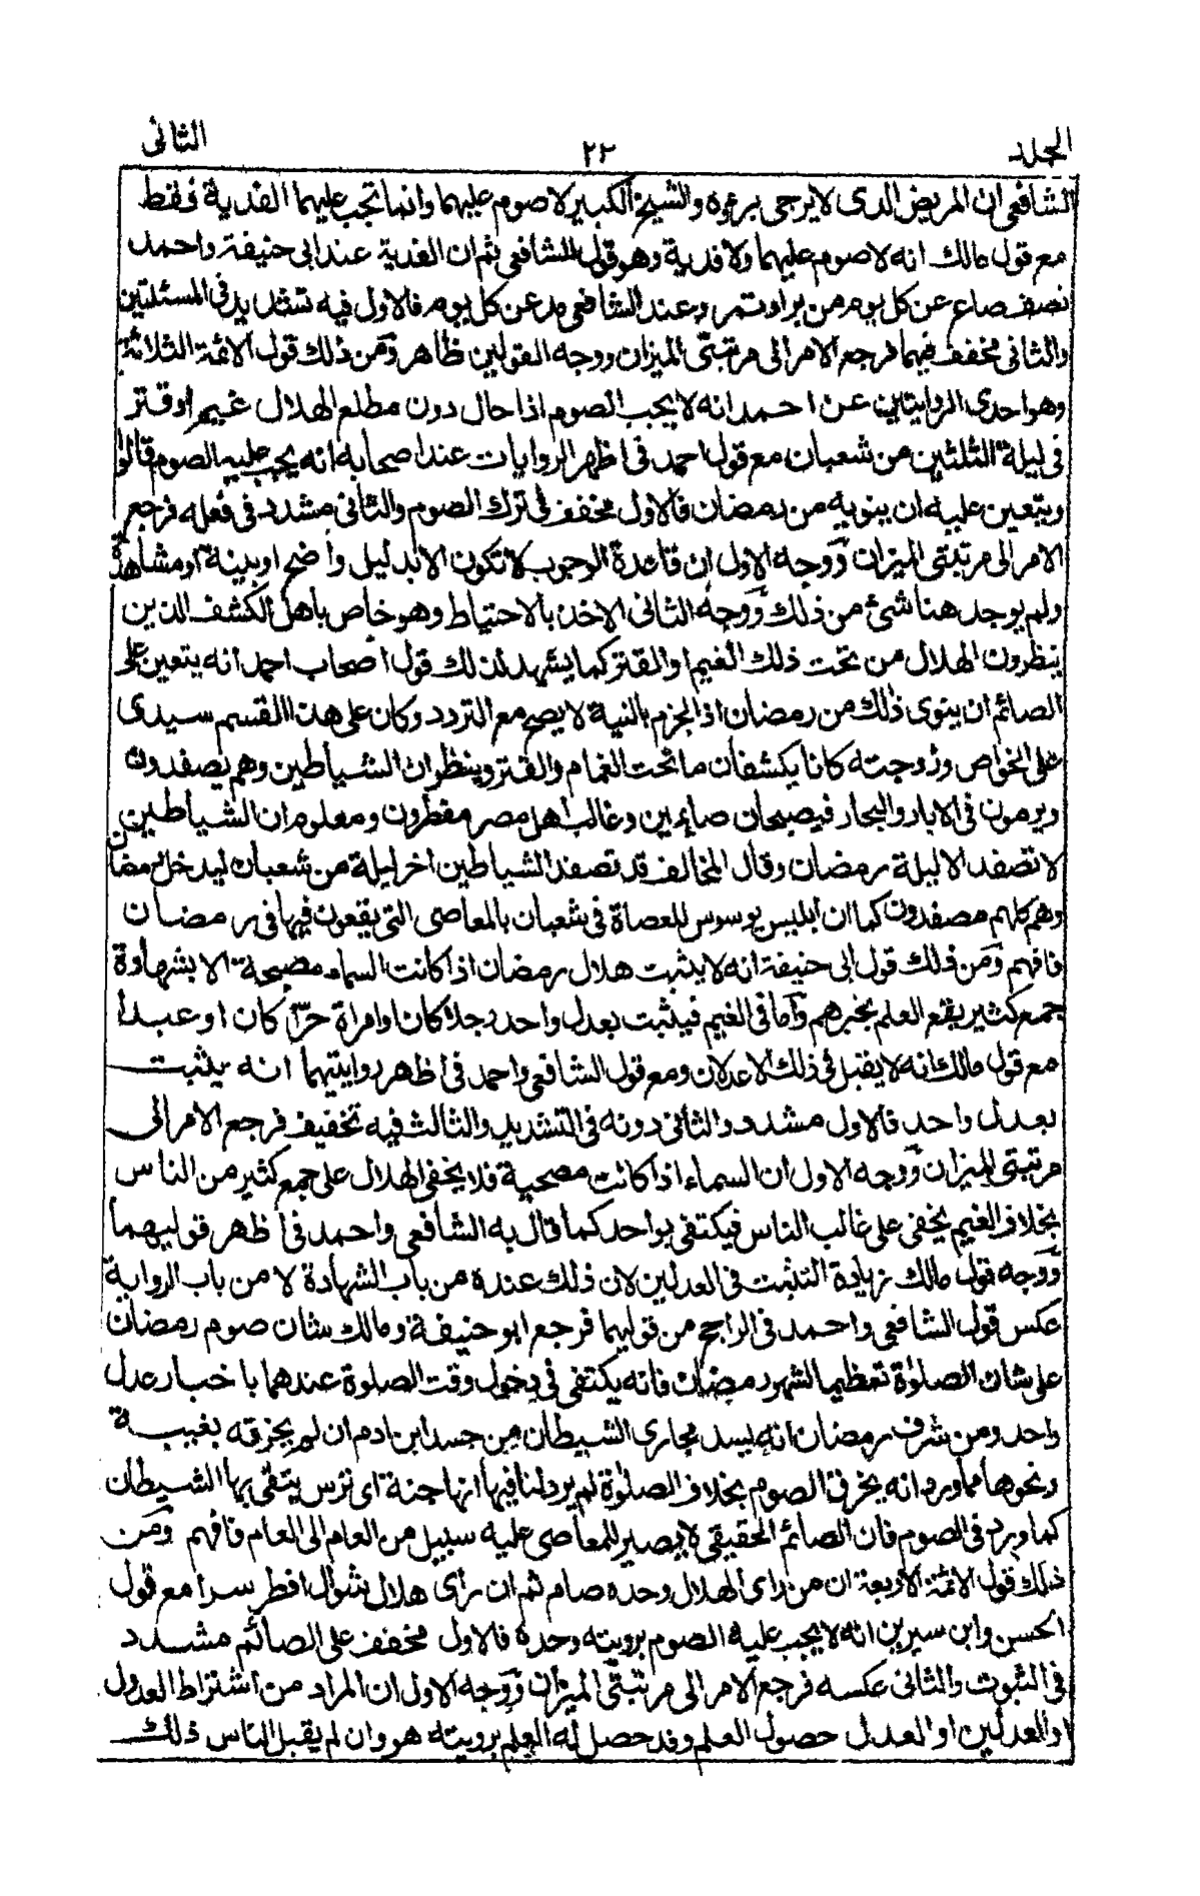 الجلد ٢٢ الثانى
الشافعى ان المريض الذى لا يرجى برءوه والشيخ الكبير لا صوم عليهما وانما تجب عليهما الفدية فقط
مع قول مالك انه لا صوم عليهما ولا فدية وهو قول للشافعى ثم ان الفدية عند ابى حنيفة واحمد
نصف صاع عن كل يوم من بر او تمر وعند الشافعى مد عن كل يوم فالاول فيه تشديد فى المسئلتين
والثانى مخفف فيهما فرجع الامر الى مرتبتى الميزان ووجه القولين ظاهر ومن ذلك قول الائمة الثلاثة
وهو احدى الروايتين عن احمد انه لا يجب الصوم اذا حال دون مطلع الهلال غيم او قتر
فى ليلة الثلثين من شعبان مع قول احمد فى اظهر الروايات عند اصحابه انه يجب عليه الصوم قالوا
ويتعين عليه ان ينويه من رمضان فالاول مخفف فى ترك الصوم والثانى مشدد فى فعله فرجع
الامر الى مرتبتى الميزان ووجه الاول ان قاعدة الوجوب لا تكون الا بدليل واضح او بينة او مشاهدة
ولم يوجد هنا شئ من ذلك ووجه الثانى الاخذ بالاحتياط وهو خاص باهل الكشف الذين
ينظرون الهلال من تحت ذلك الغيم او القتر كما يشهد لذلك قول اصحاب احمد انه يتعين على
الصائم ان ينوى ذلك من رمضان اذ الجزم بالنية لا يصح مع التردد وكان على هذا القسم سيدى
على الخواص وزوجته كانا يكشفان ما تحت الغمام والقتر وينظران الشياطين وهم يصفدون
ويرمون فى الابار والبحار فيصبحان صائمين وغالب اهل مصر مفطرون ومعلوم ان الشياطين
لا تصفد الا ليلة رمضان وقال المخالف قد تصفد الشياطين اخر ليلة من شعبان ليدخل رمضان
وهم كلهم مصفدون كما ان ابليس يوسوس للعصاة فى شعبان بالمعاصى التى يقعون فيها فى رمضان
فافهم ومن ذلك قول ابى حنيفة انه لا يثبت هلال رمضان اذا كانت السماء مصحية الا بشهادة
جمع كثير يقع العلم بخبرهم واما فى الغيم فيثبت بعدل واحد رجلا كان او امراة حرّا كان او عبدا
مع قول مالك انه لا يقبل فى ذلك الا عدلان ومع قول الشافعى واحمد فى اظهر روايتيهما انه يثبت
بعدل واحد فالاول مشدد والثانى دونه فى التشديد والثالث فيه تخفيف فرجع الامر الى
مرتبتى الميزان ووجه الاول ان السماء اذا كانت مصحية فلا يخفى الهلال على جمع كثير من الناس
بخلاف الغيم يخفى على غالب الناس فيكتفى بواحد كما قال به الشافعى واحمد فى اظهر قوليهما
ووجه قول مالك زيادة التثبت فى العدلين لان ذلك عنده من باب الشهادة لا من باب الرواية
عكس قول الشافعى واحمد فى الراجح من قوليهما فرجع ابو حنيفة ومالك شان صوم رمضان
على شان الصلوٰة تعظيما لشهر رمضان فانه يكتفى فى دخول وقت الصلوة عندهما باخبار عدل
واحد ومن شرف رمضان انه يسد مجارى الشيطان من جسد ابن ادم ان لم يخرقه بغيبة
ونحوها مما ورد انه يخرق الصوم بخلاف الصلوٰة لم يرد لنا فيها انها جنة اى ترس يتقى بها الشيطان
كما ورد فى الصوم فان الصائم الحقيقى لا يصير للمعاصى عليه سبيل من العام الى العام فافهم ومن
ذلك قول الائمة الاربعة ان من راى الهلال وحده صام ثم ان رأى هلال شوال افطر سرا مع قول
الحسن وابن سيرين انه لا يجب عليه الصوم برويته وحده فالاول مخفف على الصائم مشدد
فى الثبوت والثانى عكسه فرجع الامر الى مرتبتى الميزان ووجه الاول ان المراد من اشتراط العدول
او العدلين او العدل حصول العلم وقد حصل له العلم برويته هو وان لم يقبل الناس ذلك